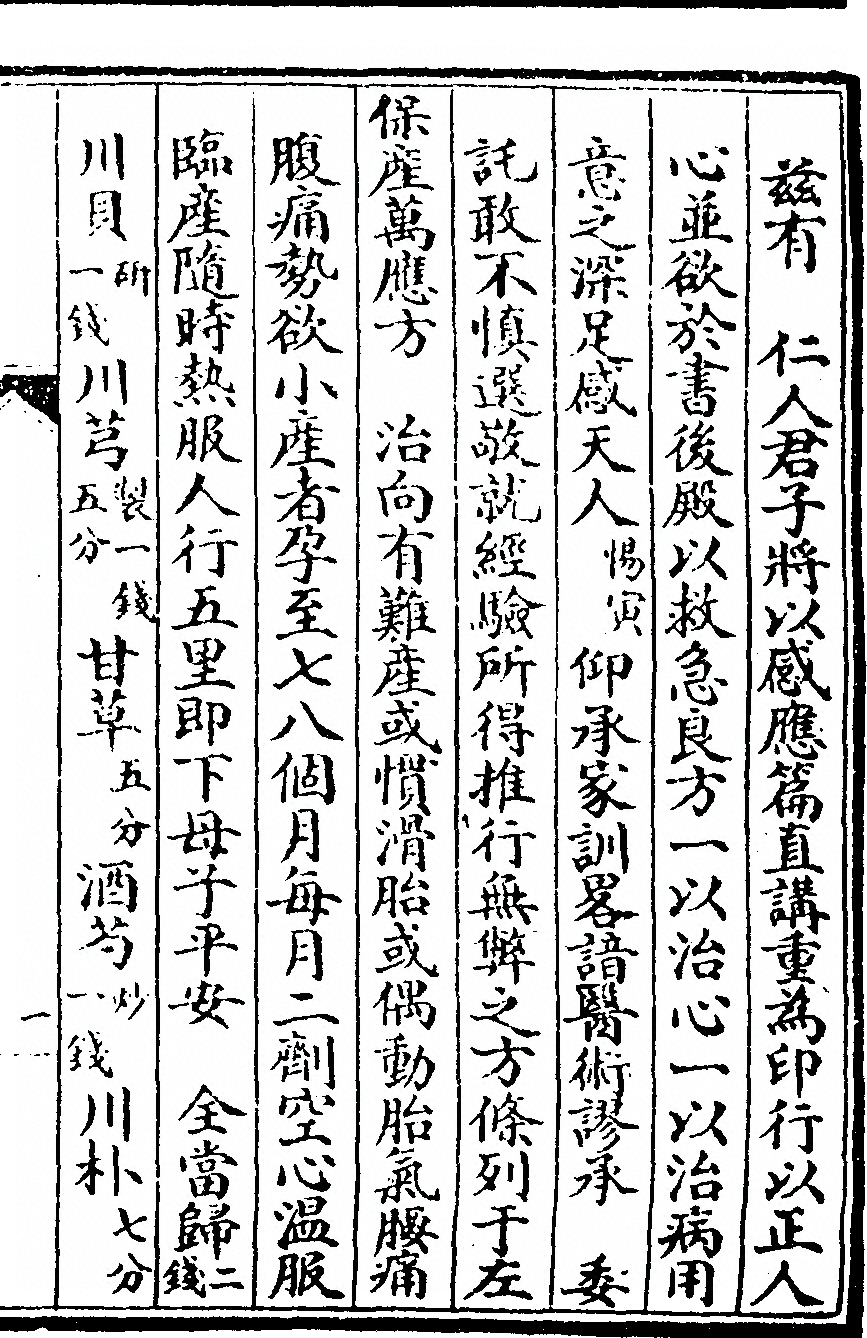 茲有　仁人君子將以感應篇直講重為印行以正人
心並欲於書後殿以救急良方一以治心一以治病用
意之深足感天人惕寅仰承家訓畧諳醫術謬承　委
託敢不慎選敬就經驗所得推行無弊之方條列于左
保產萬應方　治向有難產或慣滑胎或偶動胎氣腰痛
腹痛勢欲小產者孕至七八個月每月二劑空心溫服
臨產隨時熱服人行五里即下母子平安　全當歸二錢
川貝研一錢川芎製一錢五分甘草五分酒芍炒一錢川朴七分
一